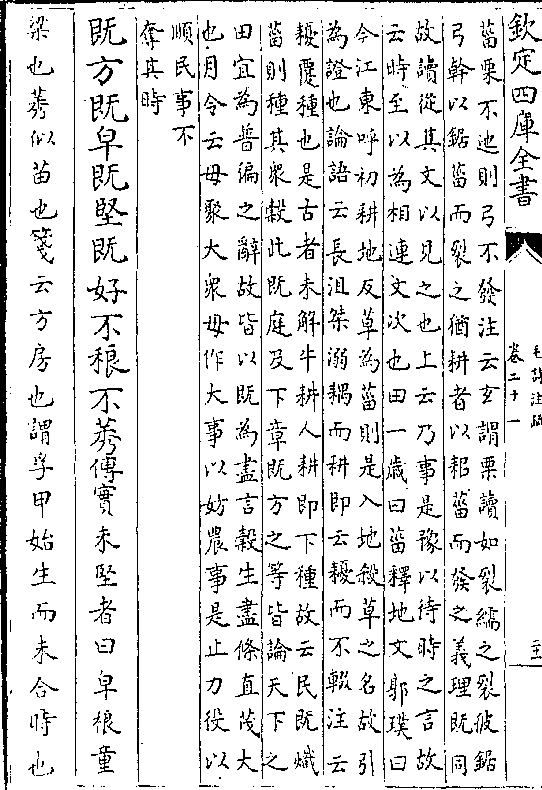 欽定四庫全書
毛詩注疏
卷二十一
菑栗不迆則弓不發注云玄謂栗讀如裂繻之裂彼鋸
弓幹以鋸菑而裂之猶耕者以耜菑而發之義理既同
故讀從其文以見之也上云乃事是豫以待時之言故
云時至以為相連文次也田一歲曰菑釋地文郭璞曰
今江東呼初耕地反草為菑則是入地殺草之名故引
為證也論語云長沮桀溺耦而耕即云耰而不輟注云
耰覆種也是古者未解牛耕人耕即下種故云民既熾
菑則種其衆榖此既庭及下章既方之等皆論天下之
田宜為普徧之辭故皆以既為盡言榖生盡條直茂大
也月令云毋聚大衆毋作大事以妨農事是止力役以
順民事不
奪其時
既方既皁既堅既好不稂不莠傳實未堅者曰皁稂童
梁也莠似苗也箋云方房也謂孚甲始生而未合時也